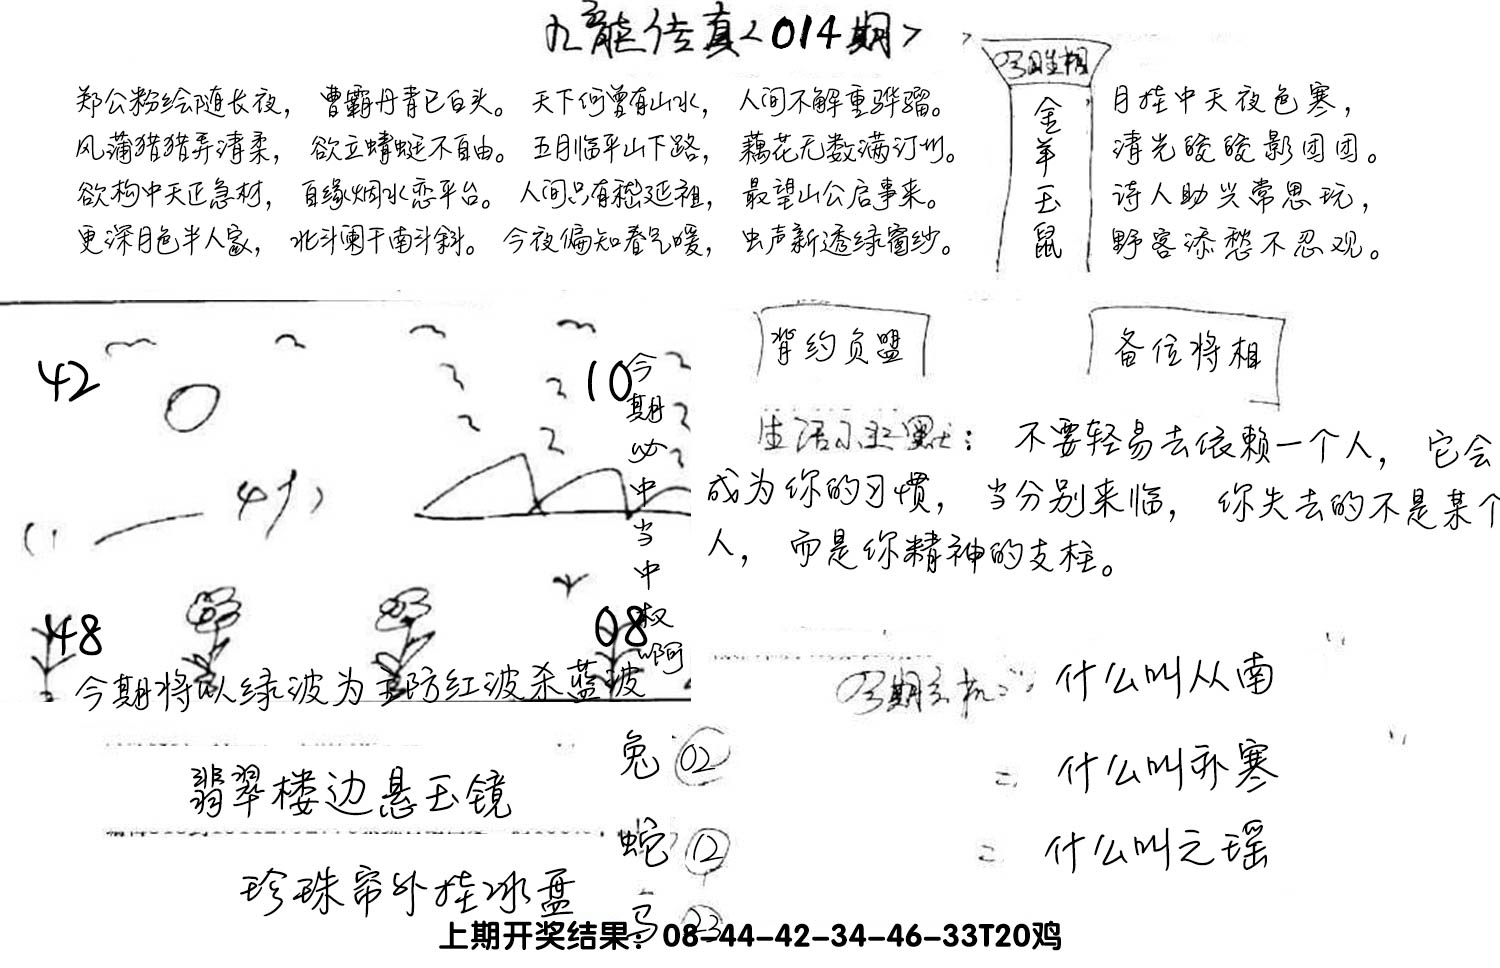 九龙传真<014期>
郑公粉绘随长夜，曹霸丹青已白头。天下何曾有山水，人间不解重骅骝。
风蒲猎猎弄清柔，欲立蜻蜓不自由。五月临平山下路，藕花无数满汀州。
欲构中天正急材，自缘烟水恋平台。人间只有嵇延祖，最望山公启事来。
更深月色半人家，北斗阑干南斗斜。今夜偏知春气暖，虫声新透绿窗纱。
金羊玉鼠
月挂中天夜色寒，
清光皎皎影团团。
诗人助兴常思玩，
野客添愁不忍观。
背约负盟
备位将相
42
10
48
08
今期必中当中权啊
今期将以绿波为主防红波杀蓝波
不要轻易去依赖一个人，它会
成为你的习惯，当分别来临，你失去的不是某个
人，而是你精神的支柱。
什么叫从南
什么叫祁寒
什么叫元瑶
翡翠楼边悬玉镜
珍珠帘外挂冰盘
兔 02
蛇 12
马 23
上期开奖结果：08-44-42-34-46-33T20鸡